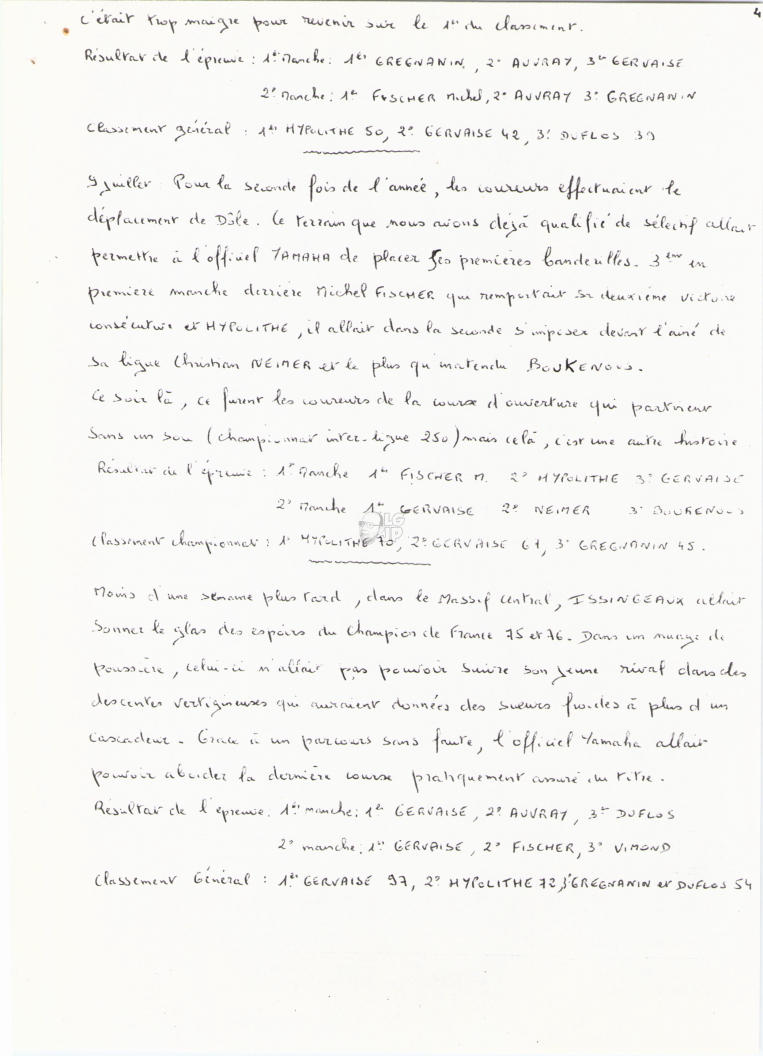 4
c'était trop maigre pour revenir sur le 1er du classement.
Résultat de l'épreuve : 1ère Manche : 1er GREGNANIN, 2e AUVRAY, 3er GERVAISE
2e Manche : 1er FISCHER Michel, 2e AUVRAY 3e GREGNANIN
Classement général : 1er HYPOLITHE 50, 2e GERVAISE 42, 3e DUFLOS 39
9 juillet Pour la seconde fois de l'année, les coureurs effectuaient le
déplacement de Dôle. Ce terrain que nous avons dejà qualifié de sélectif allait
permettre à l'officiel YAMAHA de placer ses premières banderilles. 3ème en
première manche derrière Michel FISCHER qui remportait sa deuxième victoire
consécutive et HYPOLITHE, il allait dans la seconde s'imposer devant l'ainé de
sa ligue Christian NEIMER et le plus qu'inatendu BOUKENOUS.
Ce soir là, ce furent les coureurs de la course d'ouverture qui partirent
sans un sou (championnat inter-ligue 250) mais celà, c'est une autre histoire
Résultat de l'épreuve : 1e Manche 1er FISCHER M. 2e HYPOLITHE 3e GERVAISE
2e Manche 1er GERVAISE 2e NEIMER 3e BOUKENOUS
LG IP
Classement championnat : 1e HYPOLITHE 70, 2e GERVAISE 61, 3e GREGNANIN 45.
Moins d'une semaine plus tard, dans le Massif central, ISSINGEAUX allait
sonner le glas des espoirs du Champion de France 75 et 76. Dans un nuage de
poussière, celui-ci n'allait pas pouvoir suivre son jeune rival dans des
descentes vertigineuses qui auraient données des sueurs froides à plus d'un
cascadeur. Grace à un parcours sans faute, l'officiel Yamaha allait
pouvoir aborder la dernière course pratiquement assuré du titre.
Résultat de l'épreuve. 1ère manche : 1er GERVAISE, 2e AUVRAY, 3er DUFLOS
2e manche : 1er GERVAISE, 2e FISCHER, 3e VIMOND
Classement Général : 1er GERVAISE 97, 2e HYPOLITHE 72, 3e GREGNANIN et DUFLOS 54